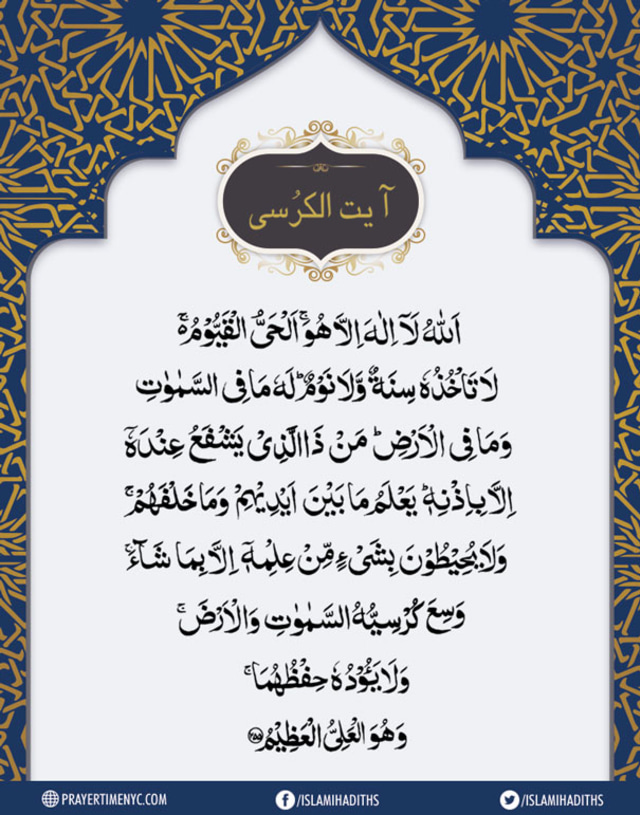 آیت الکرُسی
اَللّٰهُ لَاۤ اِلٰهَ اِلَّا هُوَۚ اَلْحَیُّ الْقَیُّوْمُ ۚ۬
لَا تَاْخُذُهٗ سِنَةٌ وَّلَا نَوْمٌؕ لَهٗ مَا فِی السَّمٰوٰتِ
وَمَا فِی الْاَرْضِؕ مَنْ ذَا الَّذِیْ یَشْفَعُ عِنْدَهٗۤ
اِلَّا بِاِذْنِهٖؕ یَعْلَمُ مَا بَیْنَ اَیْدِیْهِمْ وَمَا خَلْفَهُمْۚ
وَلَا یُحِیْطُوْنَ بِشَیْءٍ مِّنْ عِلْمِهٖۤ اِلَّا بِمَا شَآءَۚ
وَسِعَ كُرْسِیُّهُ السَّمٰوٰتِ وَالْاَرْضَۚ
وَلَا یَـُٔوْدُهٗ حِفْظُهُمَاۚ
وَهُوَ الْعَلِیُّ الْعَظِیْمُ ﴿۲۵۵﴾
PRAYERTIMENYC.COM /ISLAMIHADITHS /ISLAMIHADITHS